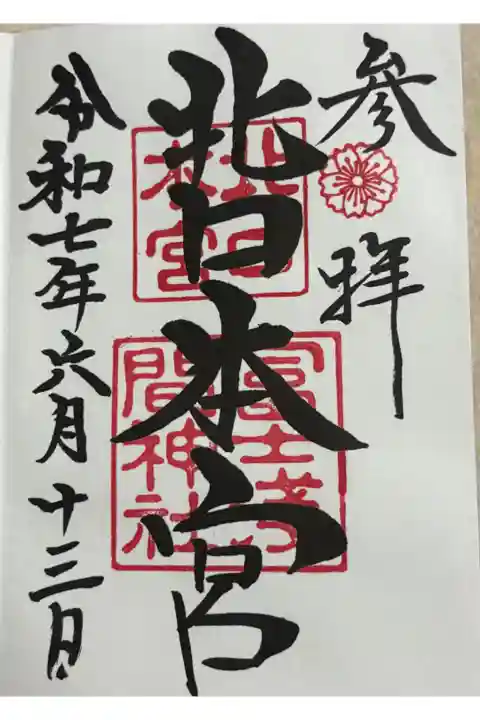 参拝
北口本宮
北口
本宮
冨士浅
間神社
令和七年六月十三日